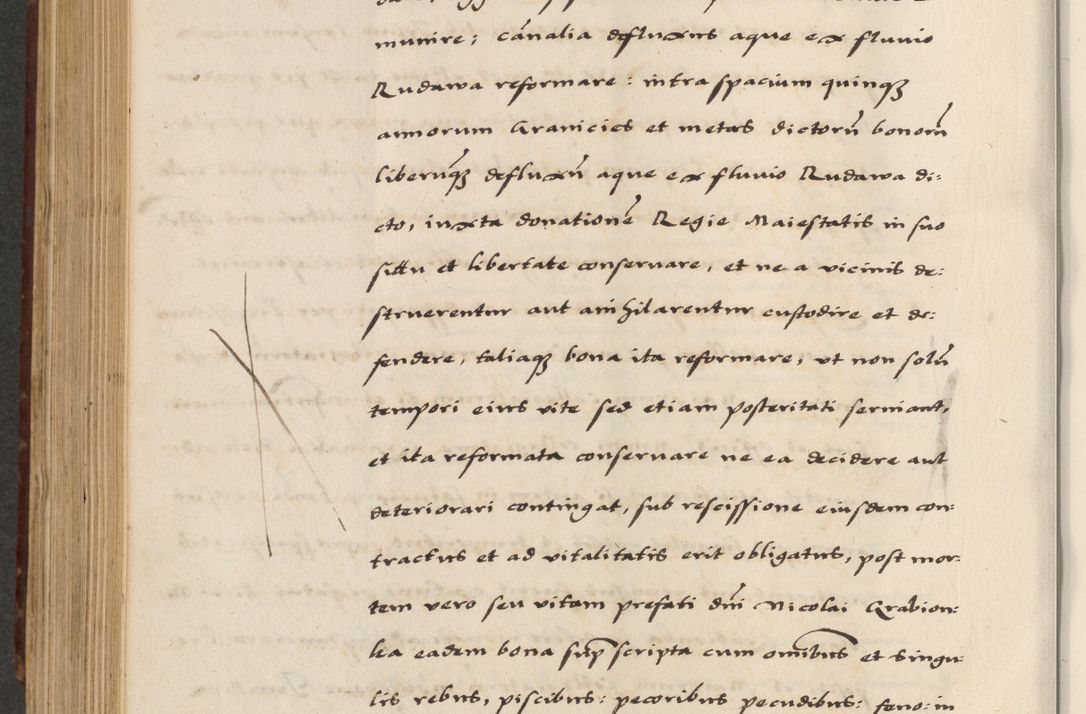 munire; canalia defluxus aque ex fluuio
Rudawa reformare: intra spacium quinqȝ
annorum Granicies et metas dictorū bonorū
liberūqȝ defluxū aque ex fluuio Rudawa di:
cto, iuxta donationē Regie Maiestatis in suo
sittu et libertate conseruare, et ne a vicinis de:
struerentur aut anihilarentur custodire et de:
fendere, taliaqȝ bona ita reformare, vt non solū
tempori eius vite sed etiam posteritati seruiant,
et ita reformata conseruare ne ea decidere aut
deteriorari contingat, sub rescissione eiusdem con:
tractus et ad vitalitatis erit obligatus, post mor:
tem vero seu vitam prefati dn̄i Nicolai Grabion:
ka eadem bona sup̄scripta cum om̄ibus et singu:
lis rebus, piscibus: pecoribus pecudibus: feno: in